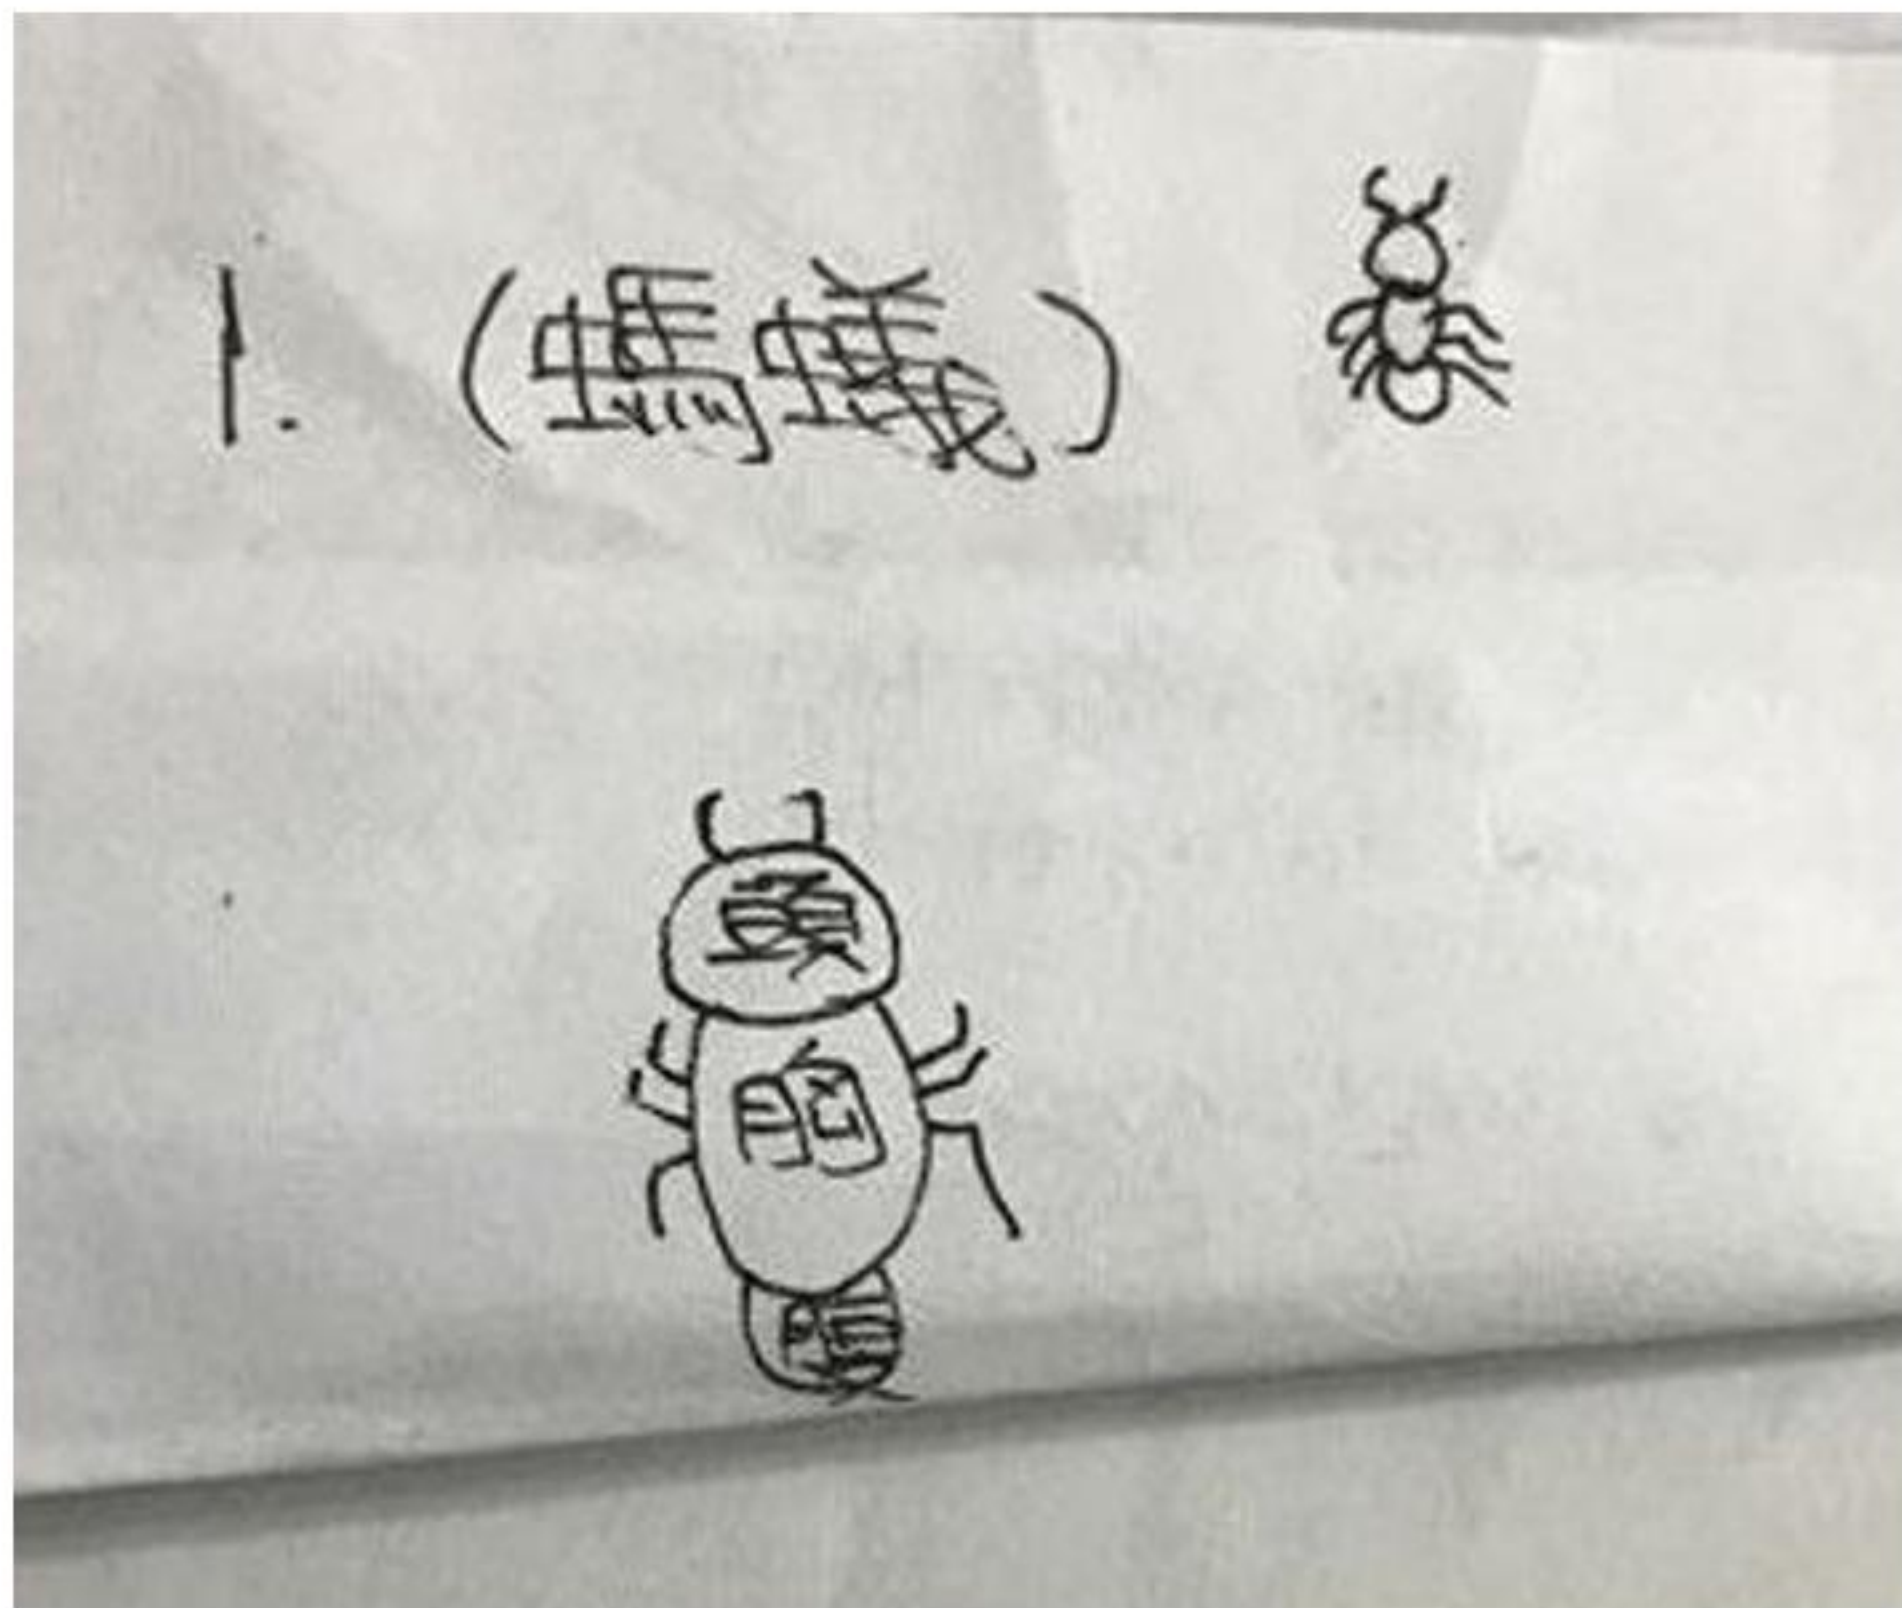 1. (螞蟻)
頭
胸
腹